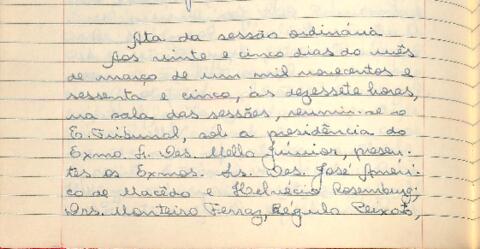 Ata da sessão ordinária
Aos vinte e cinco dias do mês
de março de um mil novecentos e
sessenta e cinco, às dezessete horas,
na sala das sessões, reuniu-se o
E. Tribunal, sob a presidência do
Exmo. Sr. Des. Mello Júnior, presen-
tes os Exmos. Srs. Des. José Améri-
co de Macêdo e Helvécio Rosenburg;
Drs. Monteiro Ferraz, Régulo Peixoto,